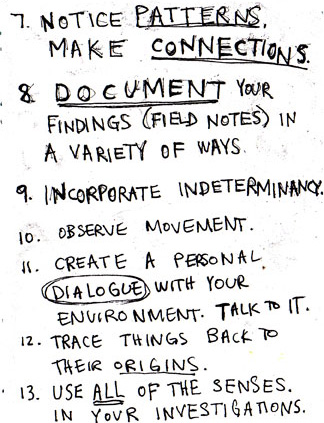 7. NOTICE PATTERNS.
MAKE CONNECTIONS.
8 DOCUMENT YOUR
FINDINGS (FIELD NOTES) IN
A VARIETY OF WAYS.
9. INCORPORATE INDETERMINANCY.
10. OBSERVE MOVEMENT.
11. CREATE A PERSONAL
DIALOGUE WITH YOUR
ENVIRONMENT. TALK TO IT.
12. TRACE THINGS BACK TO
THEIR ORIGINS.
13. USE ALL OF THE SENSES.
IN YOUR INVESTIGATIONS.